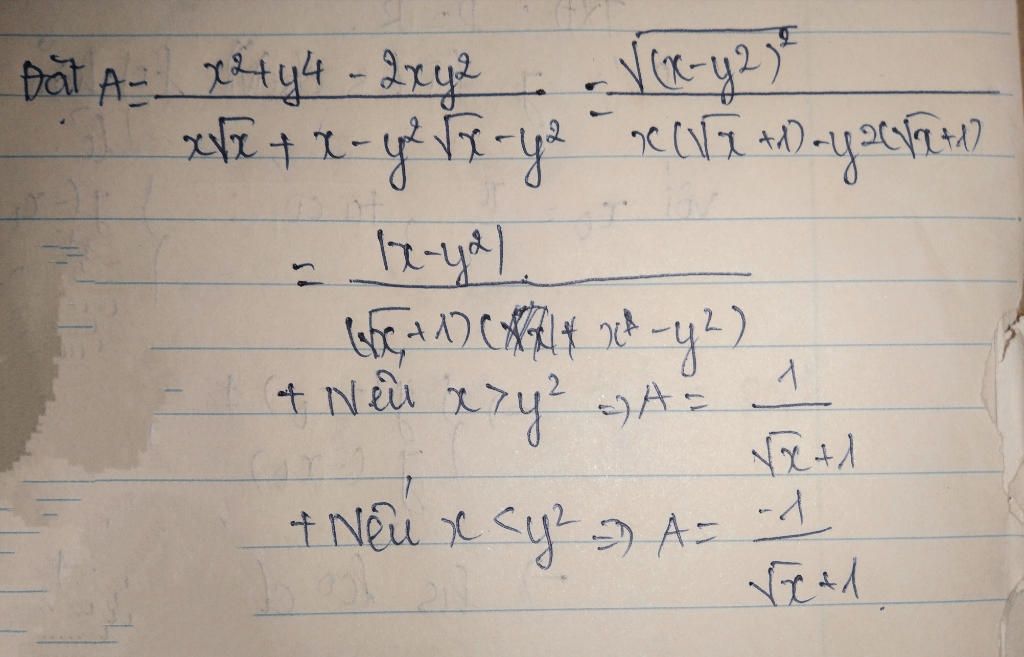 Đặt A = \frac{x^2+y^4-2xy^2}{x\sqrt{x}+x-y^2\sqrt{x}-y^2} = \frac{\sqrt{(x-y^2)^2}}{x(\sqrt{x}+1)-y^2(\sqrt{x}+1)}
= \frac{|x-y^2|}{(\sqrt{x}+1)(x-y^2)}
+ Nếu x > y^2 => A = \frac{1}{\sqrt{x}+1}
+ Nếu x < y^2 => A = \frac{-1}{\sqrt{x}+1}